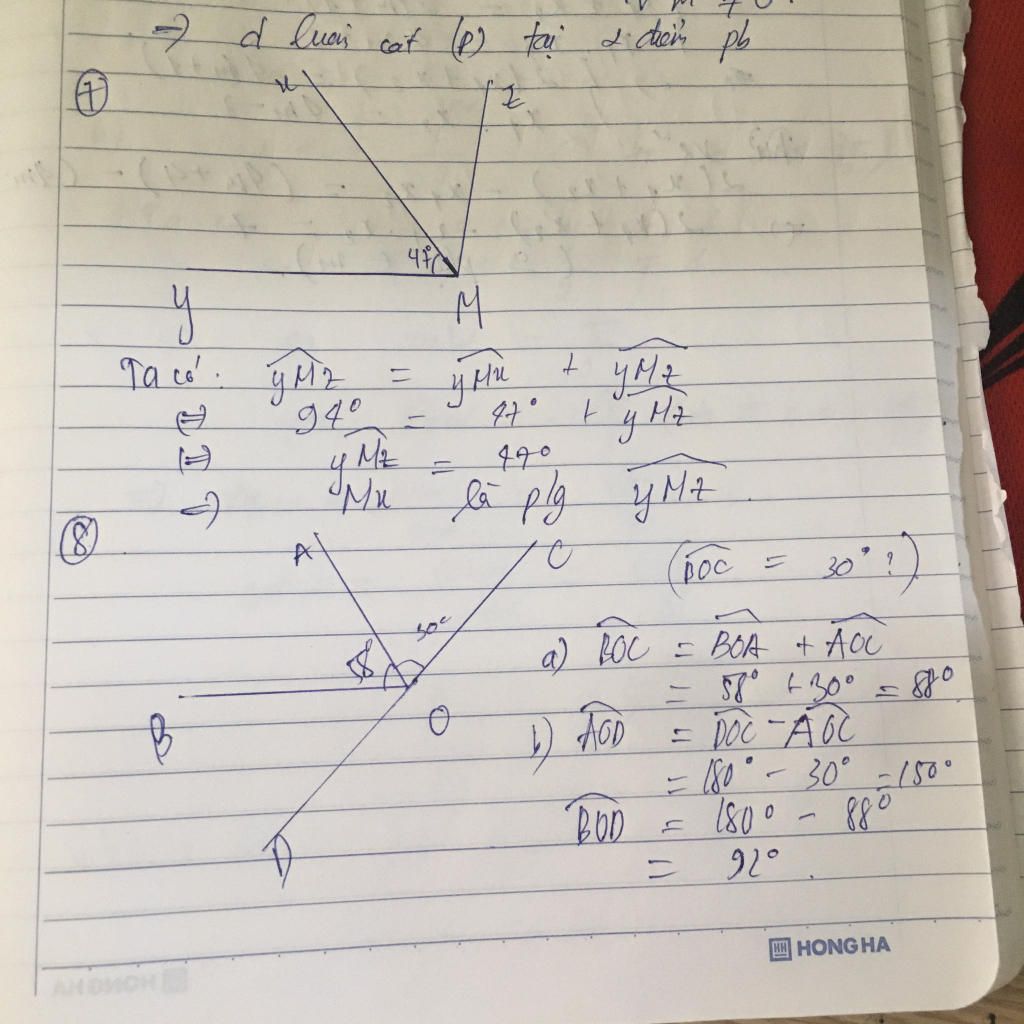 =) d luôn cắt (P) tại 2 điểm pb
7
x z
47°
y M
Ta có: yMz = yMx + yMz
(=) 94° = 47° + yMz
(=) yMz = 47°
=) Mx là p/g yMz.
8
A C (BOC = 30°?)
30°
58
B O D
a) BOC = BOA + AOC
= 58° + 30° = 88°
b) AOD = DOC - AOC
= 180° - 30° = 150°
BOD = 180° - 88°
= 92°.
HH HONG HA